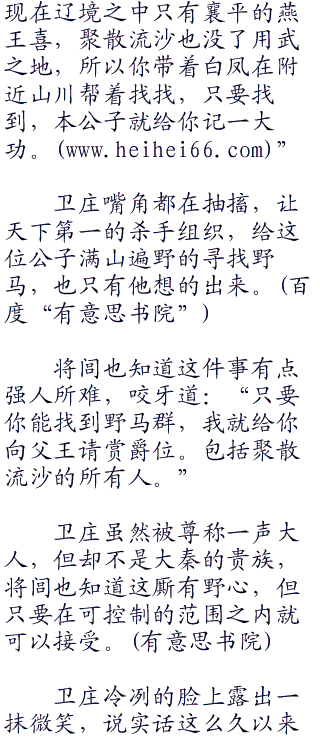 现在辽境之中只有襄平的燕
王喜，聚散流沙也没了用武
之地，所以你带着白凤在附
近山川帮着找找，只要找
到，本公子就给你记一大
功。(www.heihei66.com)”
卫庄嘴角都在抽搐，让
天下第一的杀手组织，给这
位公子满山遍野的寻找野
马，也只有他想的出来。(百
度“有意思书院”)
将闾也知道这件事有点
强人所难，咬牙道：“只要
你能找到野马群，我就给你
向父王请赏爵位。包括聚散
流沙的所有人。”
卫庄虽然被尊称一声大
人，但却不是大秦的贵族，
将闾也知道这厮有野心，但
只要在可控制的范围之内就
可以接受。(有意思书院)
卫庄冷冽的脸上露出一
抹微笑，说实话这么久以来